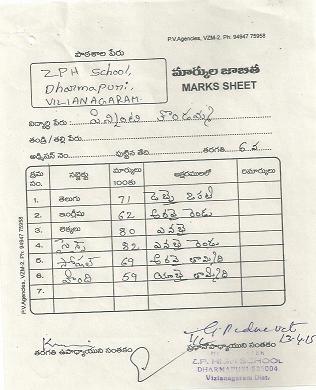 P.V.Agencies, VZM-2. Ph: 94947 75958
పాఠశాల పేరు
ZPH School,
Dharmapuri,
VIZIANAGARAM.
మార్కుల జాబితా
MARKS SHEET
విద్యార్థి పేరు:
తండ్రి / తల్లి పేరు:
అడ్మిషన్ నెం. పుట్టిన తేది. తరగతి 6వ
క్రమ సం. సబ్జెక్టు మార్కులు 100కు అక్షరములలో రిమార్కులు
1. తెలుగు 71 డెబ్బై ఒకటి
2. ఇంగ్లీషు 62 అరవై రెండు
3. లెక్కలు 80 ఎనభై
4. సైన్స్ 82 ఎనభై రెండు
5. సోషల్ 69 అరవై తొమ్మిది
6. హిందీ 59 యాభై తొమ్మిది
7.
P.V.Agencies, VZM-2. Ph: 94947 75958
13-4-15
తరగతి ఉపాధ్యాయుని సంతకం ప్రధానోపాధ్యాయుని సంతకం
Z.P. HIGH SCHOOL
DHARMAPURI 535004
Vizianagaram Dist.